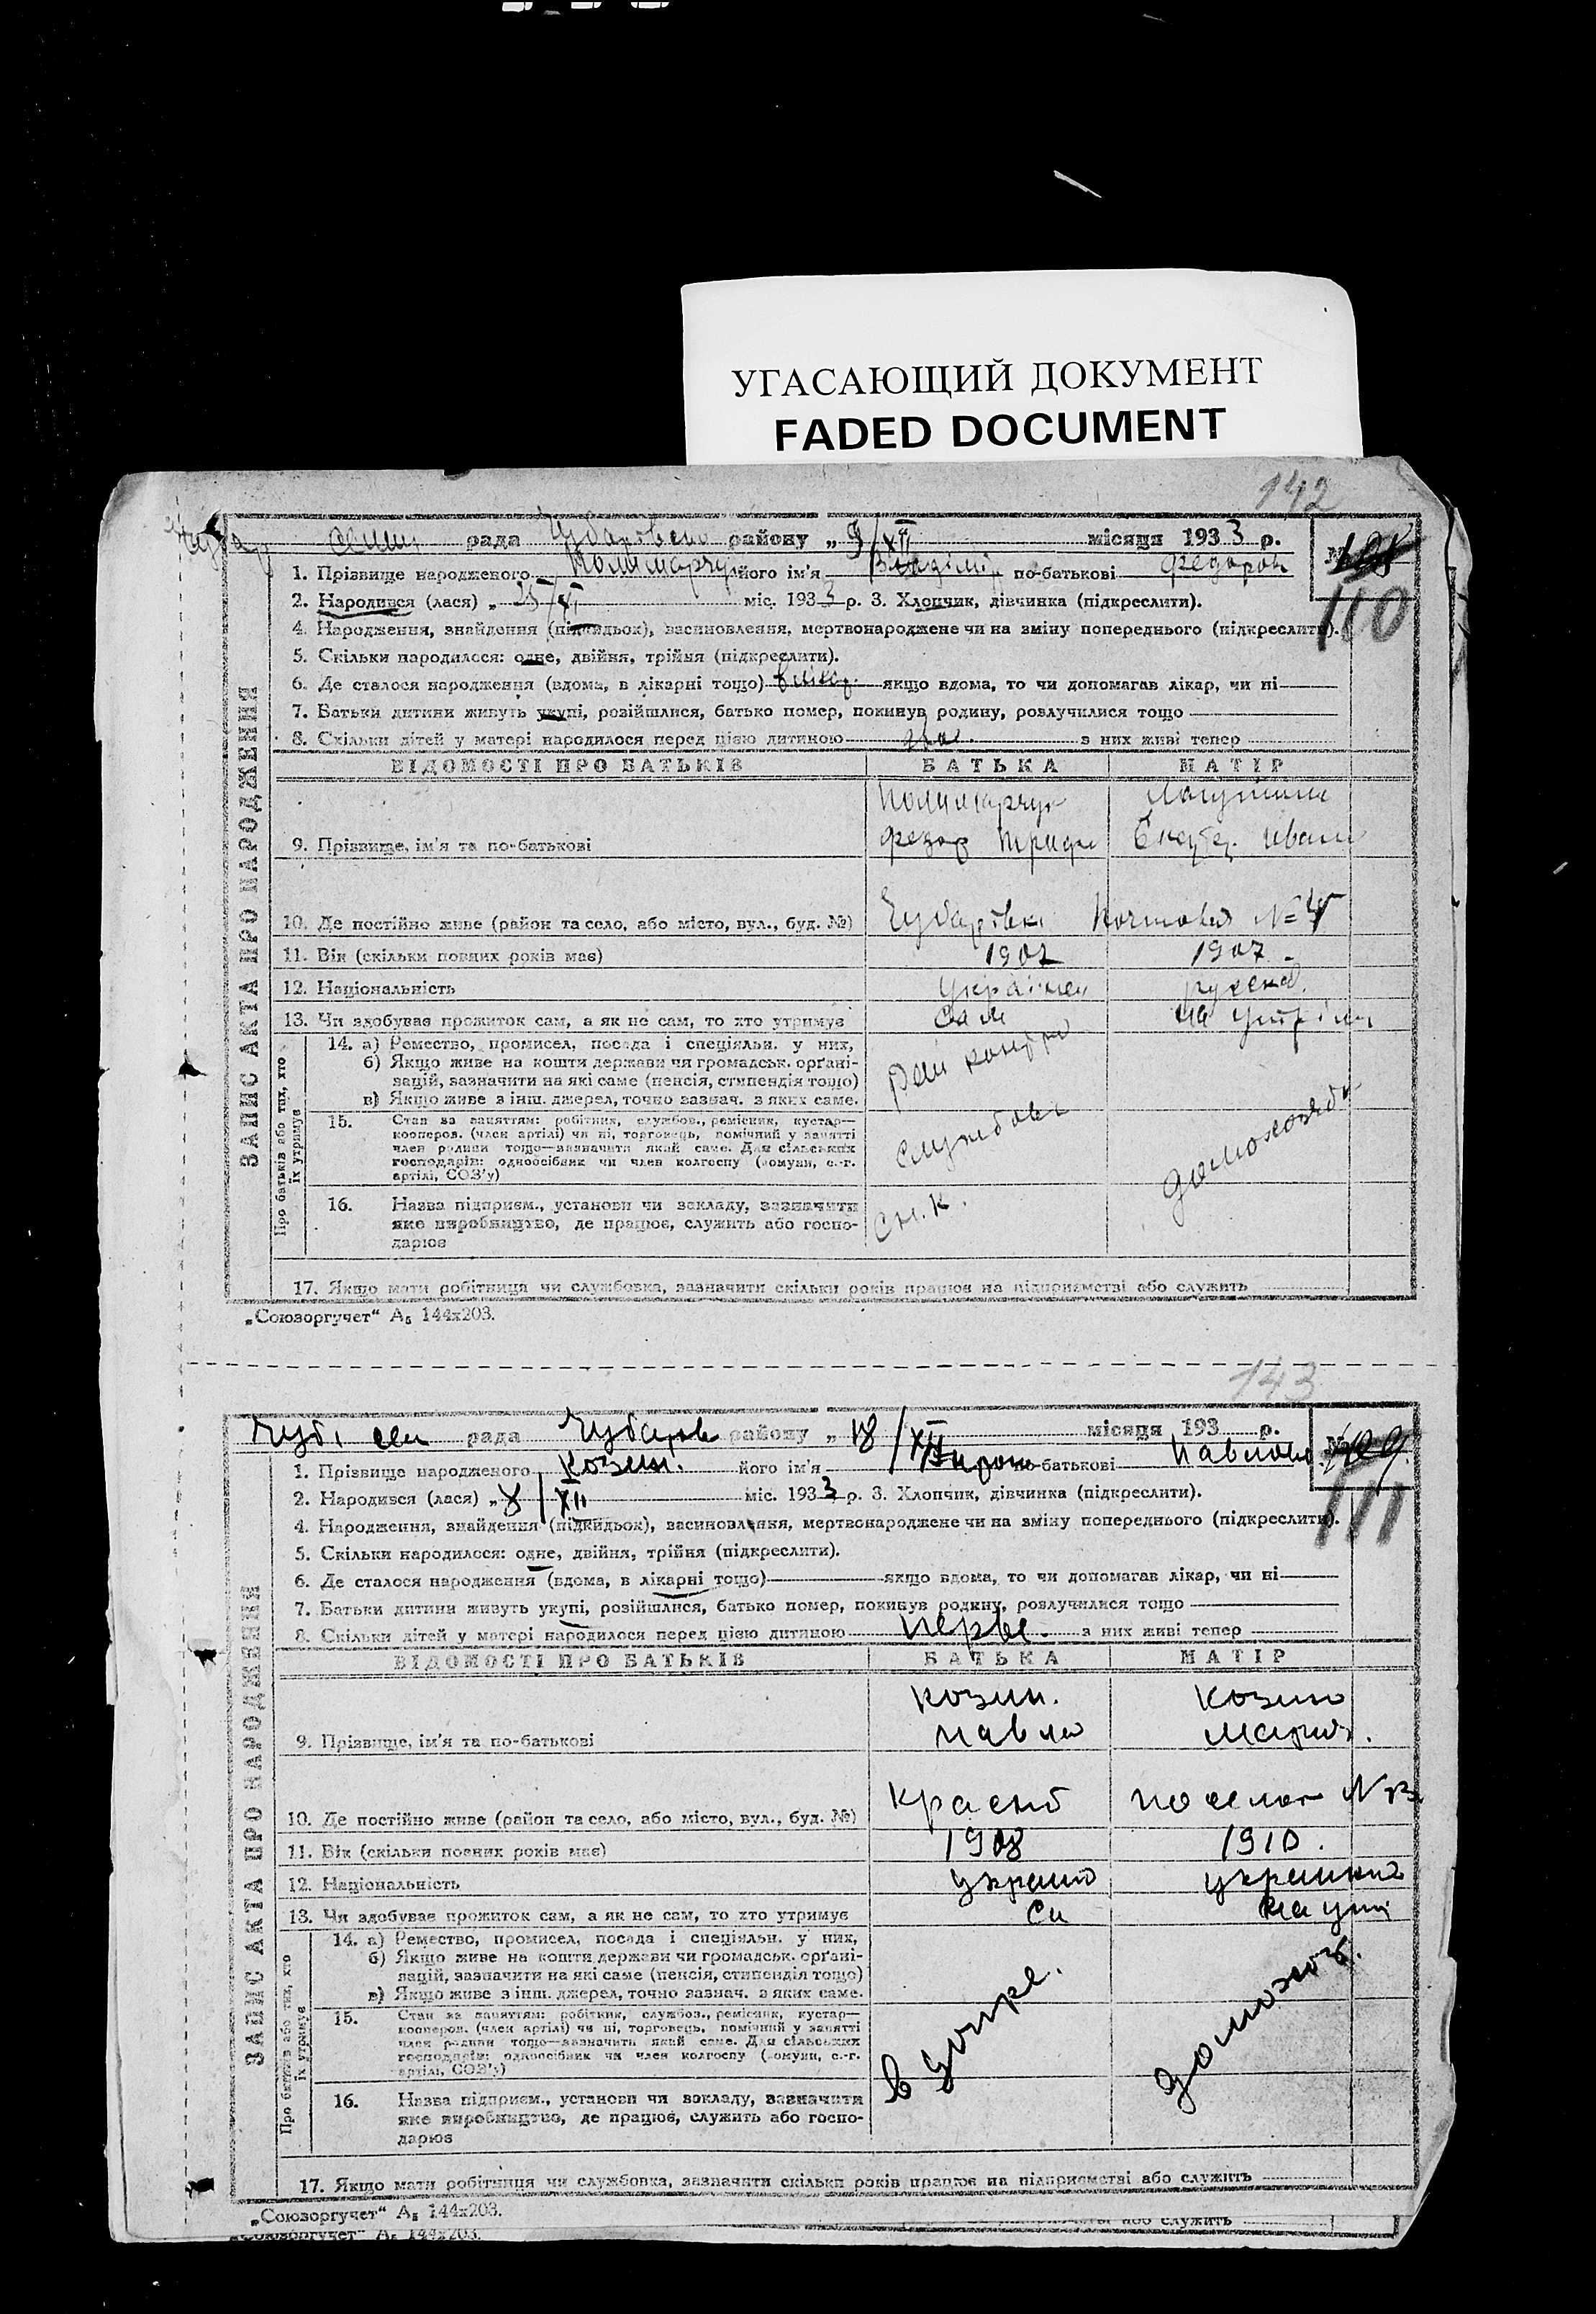 УГАСАЮЩИЙ ДОКУМЕНТ
FADED DOCUMENT
142
рада Чубарівсько району „ 9/XII місяця 1933 р.
№
110
ЗАПИС АКТА ПРО НАРОДЖЕННЯ
1. Прізвище народженого Полимарчук його ім'я Владімір по-батькові Федоров
2. Народився (лася) „ 25/XI міс. 1933 р. 3. Хлопчик, дівчинка (підкреслити).
4. Народження, знайдення (підкидьок), васиновлення, мертвонароджене чи на зміну попереднього (підкреслити).
5. Скільки народилося: одне, двійня, трійня (підкреслити).
6. Де сталося народження (вдома, в лікарні тощо) в лікар. якщо вдома, то чи допомагав лікар, чи ні
7. Батьки дитини живуть укупі, розійшлися, батько помер, покинув родину, розлучилися тощо
8. Скільки дітей у матері народилося перед цією дитиною з них живі тепер
ВІДОМОСТІ ПРО БАТЬКІВ БАТЬКА МАТІР
Полимарчук
9. Прізвище, ім'я та по-батькові Федор Екатер. Иван
10. Де постійно живе (район та село, або місто, вул., буд. №) Чубарівка Почтовая №
11. Вік (скільки повних років має) 1907 1907
12. Національність українец русска
13. Чи здобуває прожиток сам, а як не сам, то хто утримує сам на утрім
Про батьків або тих, хто їх утримує
14. а) Ремество, промисел, посада і спеціяльн. у них,
б) Якщо живе на кошти держави чи громадськ. орґані-
зацій, зазначити на які саме (пенсія, стипендія тощо)
в) Якщо живе з інш. джерел, точно зазнач. з яких саме.
15. Стан за заняттям: робітник, службов., ремісник, кустар—
кооперов. (член артілі) чи ні, торговець, помічний у занятті
член родини тощо—зазначити який саме. Для сільських
господарів: одноосібник чи член колгоспу (комуни, с.-г.
артілі, СОЗ'у)
службов
домохозяйк
16. Назва підприєм., установи чи закладу, зазначити
яке виробництво, де працює, служить або госпо-
дарює
17. Якщо мати робітниця чи службовка, зазначити скільки років працює на підприємстві або служить
„Союзоргучет“ А5 144х203.
143
Чуб. рада Чубарів району „ 18/XII місяця 193 р.
№ 109.
111
ЗАПИС АКТА ПРО НАРОДЖЕННЯ
1. Прізвище народженого Козин. його ім'я по-батькові Павлов
2. Народився (лася) „ 8/XII міс. 1933 р. 3. Хлопчик, дівчинка (підкреслити).
4. Народження, знайдення (підкидьок), васиновлення, мертвонароджене чи на зміну попереднього (підкреслити).
5. Скільки народилося: одне, двійня, трійня (підкреслити).
6. Де сталося народження (вдома, в лікарні тощо) якщо вдома, то чи допомагав лікар, чи ні
7. Батьки дитини живуть укупі, розійшлися, батько помер, покинув родину, розлучилися тощо
8. Скільки дітей у матері народилося перед цією дитиною перве. з них живі тепер
ВІДОМОСТІ ПРО БАТЬКІВ БАТЬКА МАТІР
Козин. Козин
9. Прізвище, ім'я та по-батькові Павло Мария.
10. Де постійно живе (район та село, або місто, вул., буд. №) Красн поселок №3
11. Вік (скільки повних років має) 1908 1910.
12. Національність украин украинка
13. Чи здобуває прожиток сам, а як не сам, то хто утримує са на утр
Про батьків або тих, хто їх утримує
14. а) Ремество, промисел, посада і спеціяльн. у них,
б) Якщо живе на кошти держави чи громадськ. орґані-
зацій, зазначити на які саме (пенсія, стипендія тощо)
в) Якщо живе з інш. джерел, точно зазнач. з яких саме.
15. Стан за заняттям: робітник, службов., ремісник, кустар—
кооперов. (член артілі) чи ні, торговець, помічний у занятті
член родини тощо—зазначити який саме. Для сільських
господарів: одноосібник чи член колгоспу (комуни, с.-г.
артілі, СОЗ'у)
домохоз.
16. Назва підприєм., установи чи закладу, зазначити
яке виробництво, де працює, служить або госпо-
дарює
17. Якщо мати робітниця чи службовка, зазначити скільки років працює на підприємстві або служить
„Союзоргучет“ А5 144х203.
або служить
„Союзоргучет“ А5 144х203.